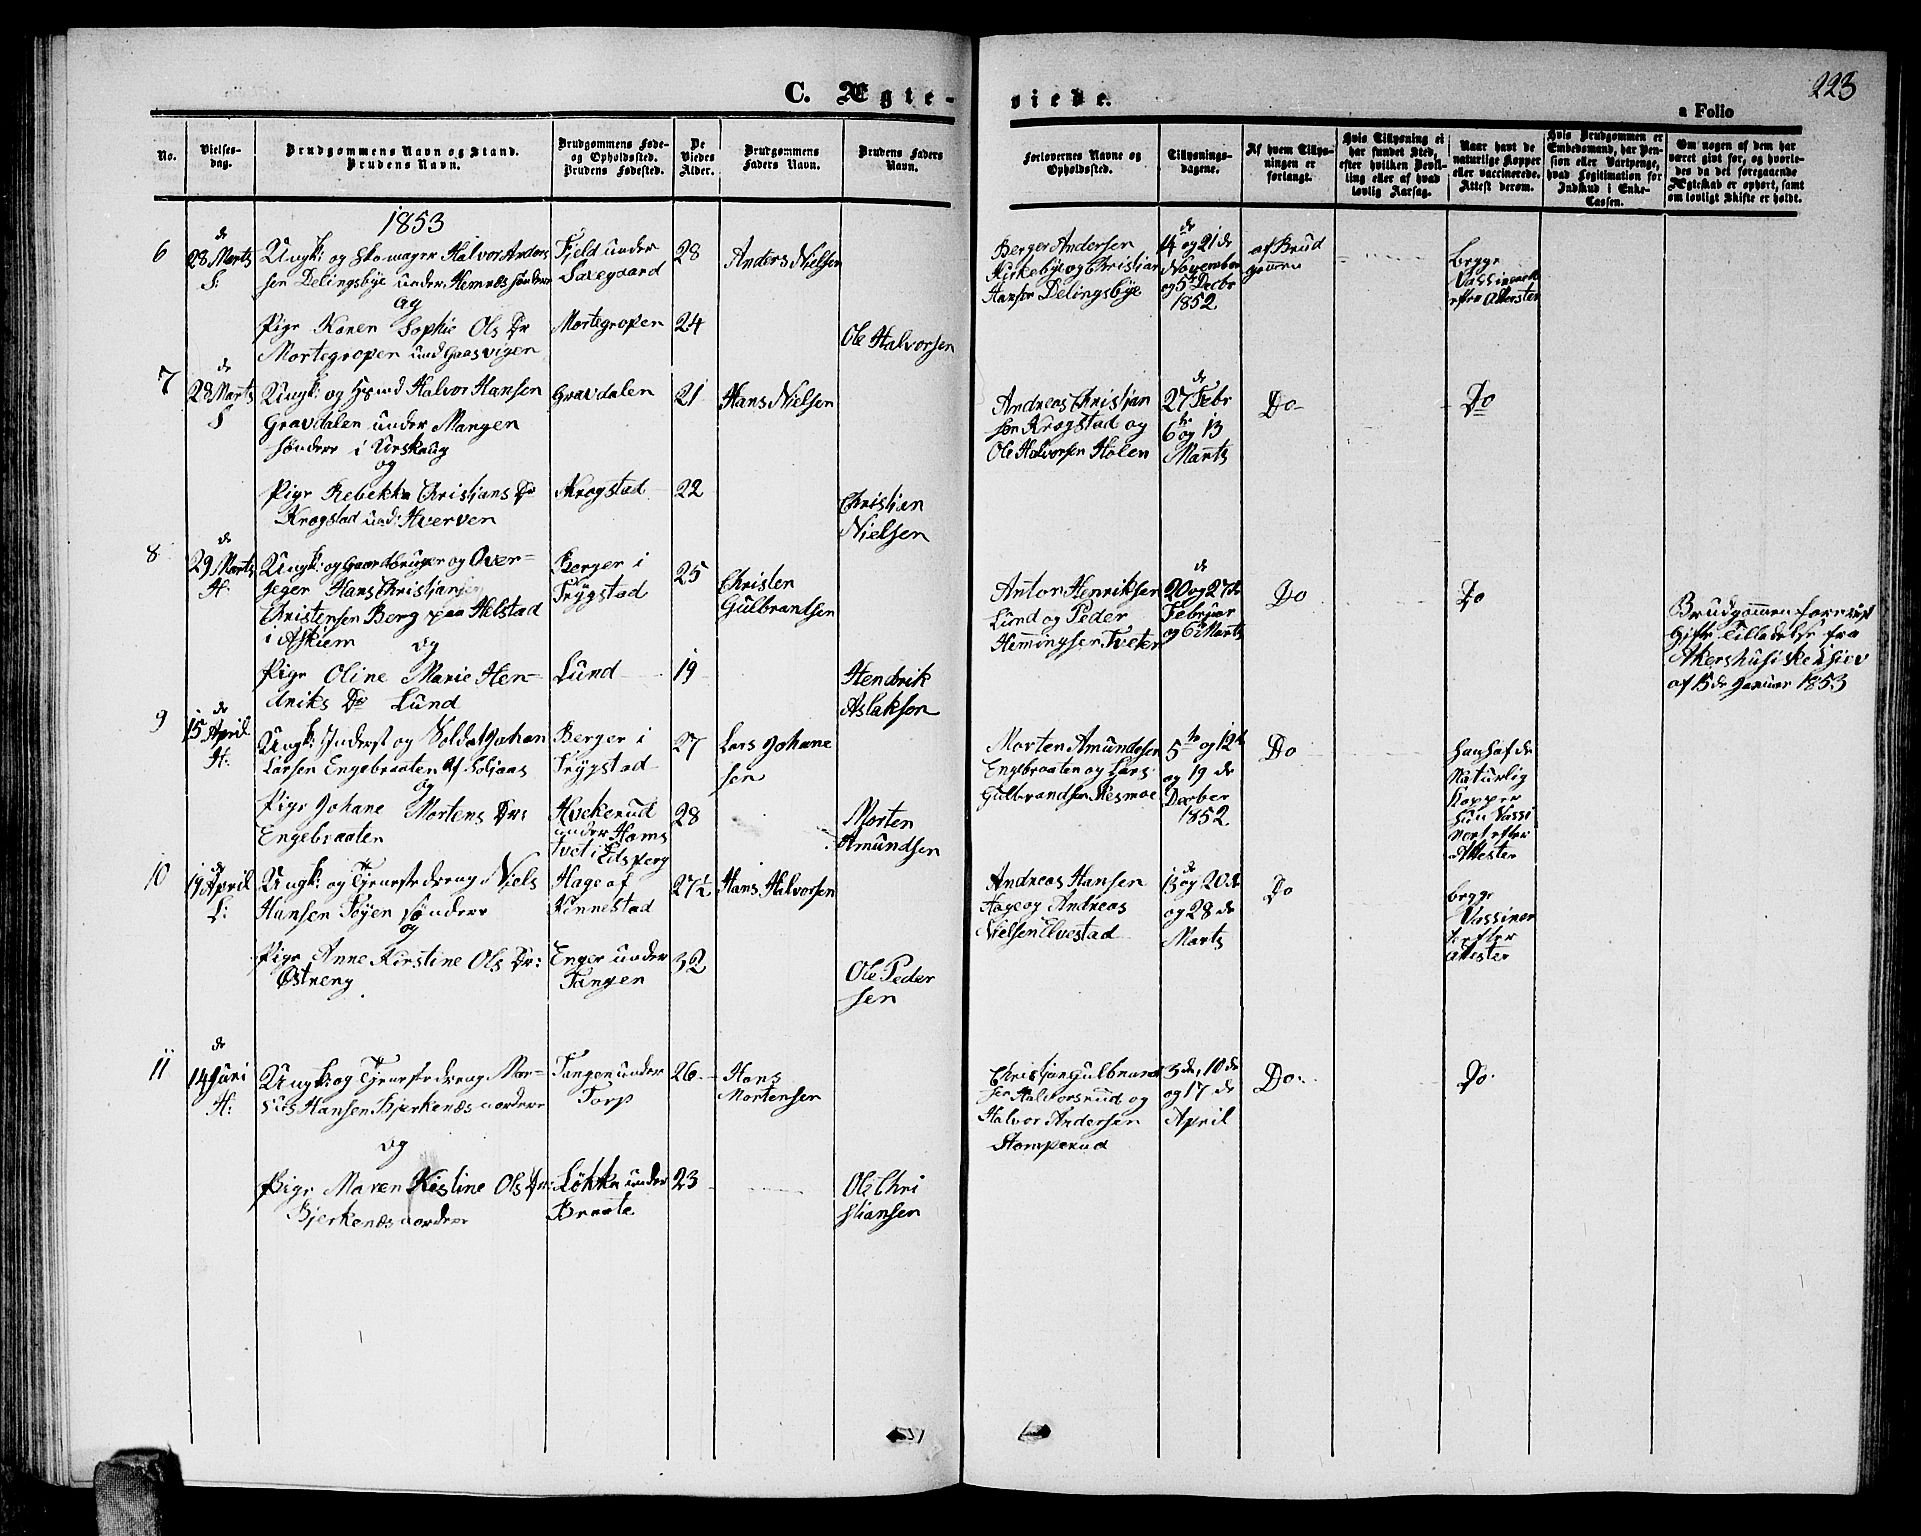 C. Ægte-
viede.
223
a Folio
No.
Vielses-
dag.
Brudgommens Navn og Stand.
Brudens Navn.
Brudgommens Føde-
og Opholdssted.
Brudens Fødested.
De
Viedes
Alder.
Brudgommens
Faders Navn.
Brudens Faders
Navn.
Forlovernes Navne og
Opholdssted.
Tillysnings-
dagene.
Af hvem Tillys-
ningen er
forlangt.
Hvis Tillysning ei
har fundet Sted,
efter hvilken Bevil-
ling eller af hvad
lovlig Aarsag.
Naar havt de
naturlige Kopper
eller vaccinerede.
Attest derom.
Hvis Brudgommen er
Embedsmand, har Pen-
sion eller Vartpenge,
hvad Legitimation for
Indskud i Enke-
Cassen.
Om nogen af dem har
været givt før, og hvorle-
des da det foregaaende
Ægteskab er ophørt, samt
om lovligt Skifte er holdt.
1853
6
28 de Marts
S:
Ungk: og Skomager Halvor Anders
sen Delingsbye under Hemnæs søndere
og
Pige Karen Sophie Ols Dr
Mortegropen und Gaasvigen
Fjeld under
Mortegropen
28
24
Anders Nielsen
Ole Halvorsen
Berger Andersen
Kirkebye og Christian
Hansen Delingsbye
14 de og 21 de
November
og 5te Decbr
1852
af Brud
gommen
begge
efter Attester
7
28 de Marts
S
Ungk: og Halvor Hansen
Gravdalen under Mangen
søndere i Urskoug
og
Pige Rebekka Christians Dr
Krogstad und: Hverven
Gravdalen
Krogstad
21
22
Hans Nielsen
Christian
Nielsen
Andreas Christian
sen Krogstad og
Ole Halvorsen Holen
27 de Febr
6te og 13
Marts
Do
Do
8
29 de Marts
H:
Ungk: og Gaardbruger og Over-
Jeger Hans Christian
Christensen Berg paa Helstad
i Askiem
og
Pige Oline Marie Hen-
driks Dr Lund
Berger i
Trygstad
Lund
25
19
Christen
Gulbrandsen
Hendrik
Aslaksen
Anton Henriksen
Lund og Peder
Hemmingsen Tveter
20 de og 27 de
Februar
og 6 Marts
Do
Do
Brudgommen forevist
Gifte Tilladelse fra
Akershusiske
af 15 de Januar 1853
9
15 de April
H:
Ungk: Inderst og Soldat Johan
Larsen Engebraaten af
og
Pige Johane Mortens Dr
Engebraaten
Berger i
Trygstad
Hvekerud
under Hams
tvet i Edsberg
27
28
Lars Johane
sen
Morten
Amundsen
Morten Amundsen
Engebraaten og Lars
Gulbrandsen
5te og 12 de
og 19 de
Decber
1852
Do
han haf de
Naturlig
Kopper
hun Vassi
neret efter
Attester
10
19 de April
L:
Ungk: og Tjenestedreng Niels
Hansen Tøyen søndere
og
Pige Anne Kirstine Ols Dr:
Østreng
Hage af
Kinnestad
Enger under
Tangen
27½
32
Hans Halvorsen
Ole Peder
sen
Andreas Hansen
Hage og Andreas
Nielsen Elvestad
13 de og 20 de
og 28 de
Marts
Do
begge
Vassiner
te efter
Attester
11
14 de Juni
H:
Ungk: og Tjenestedreng Mar-
Hansen Bjerkenæs nordere
og
Pige Maren Kistine Ols Dr:
Bjerkenæs nordrer
Tangen under
Torp
Løkka under
Braate
26
23
Hans
Mortensen
Ole Chri
stiansen
Christian Gulbrand
sen Halvorsrud og
Halvor Andersen
Stomperud
3 de, 10 de
og 17 de
April
Do
Do